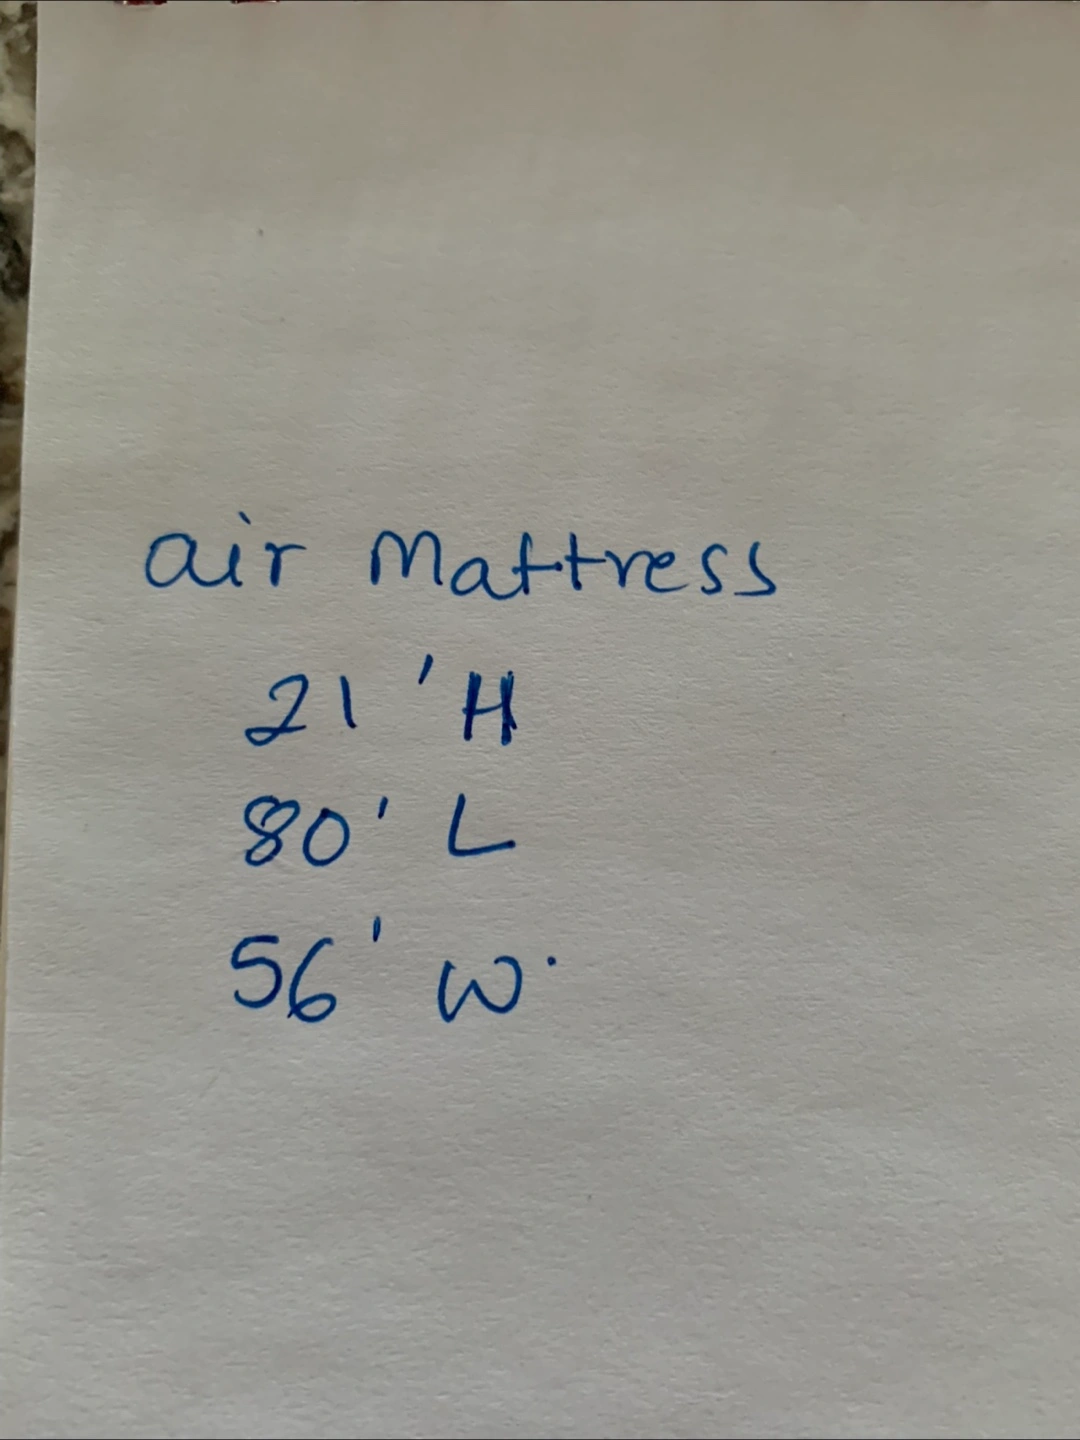 air Mattress
21 ' H
80' L
56' W.